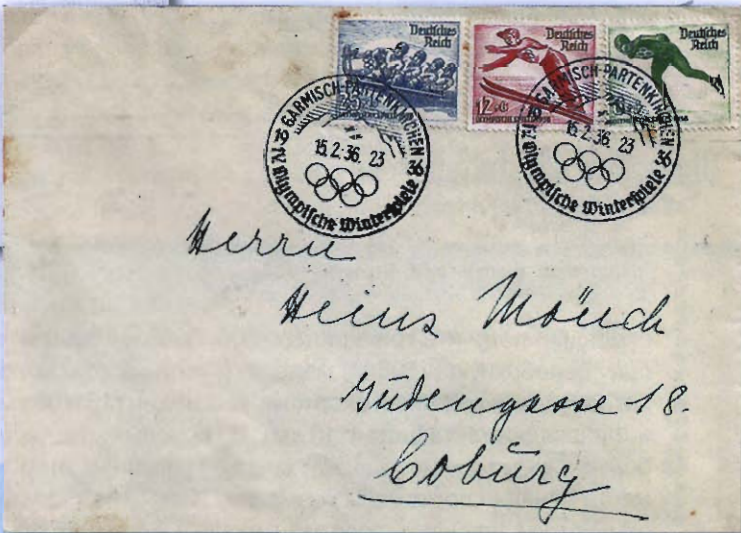 Deutsches
Reich
Deutsches
Reich
12
Deutsches
Reich
GARMISCH-PARTENKIRCHEN
15.2.36. 23
IV. Olympische Winterspiele
GARMISCH-PARTENKIRCHEN
15.2.36. 23
IV. Olympische Winterspiele
Herrn
Heinz Mönch
Judengasse 18.
Coburg